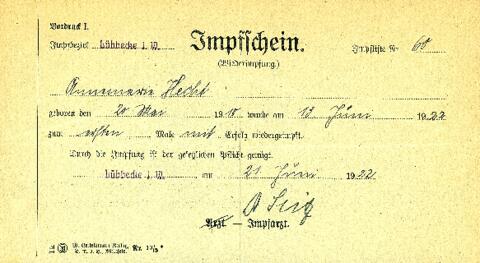 Vordruck I.
Impfbezirk Lübbecke i. W. Impfschein. Impfliste Nr. 60
(Wiederimpfung.)
Annemarie Hecht
geboren den 20 Mai 1910 wurde am 13 Juni 1922
zum ersten Male mit Erfolg wiedergeimpft.
Durch die Impfung ist der gesetzlichen Pflicht genügt.
Lübbecke i. W. am 21 Juni 1922
Arzt — Impfarzt.